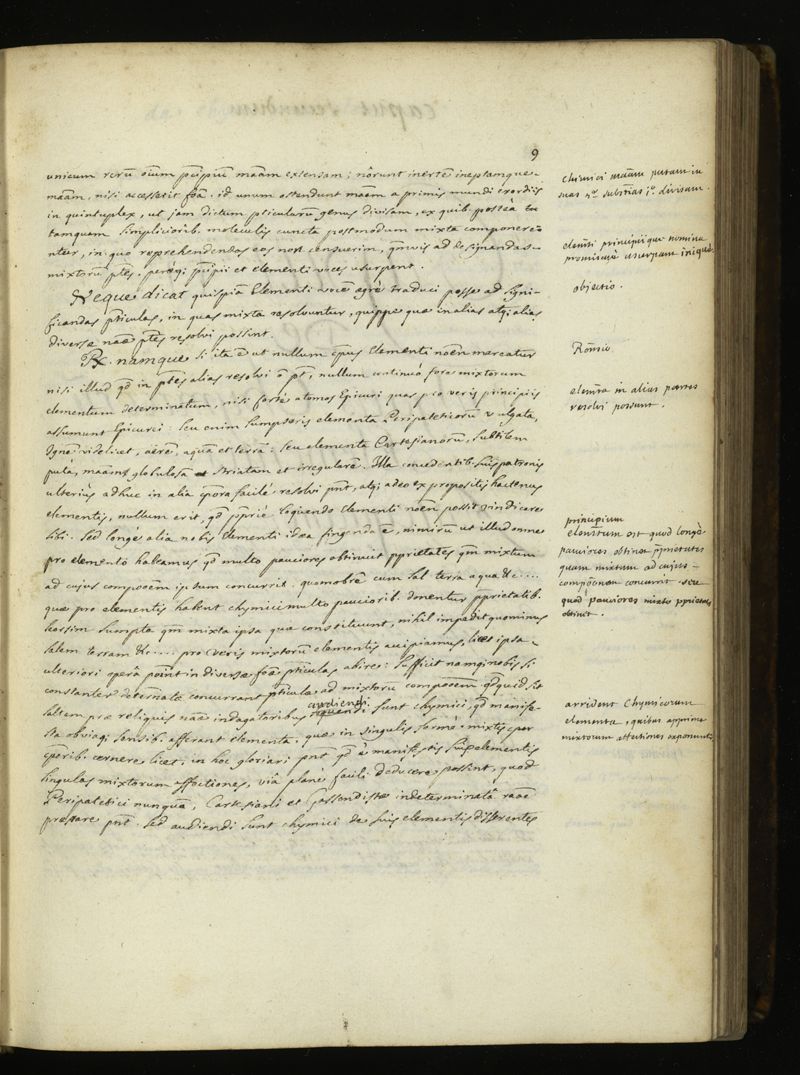 9
unicum rerū oīum pcipiū maām extensam; nōrunt inertē ineptamque
maām, nisi accesserit foā. id unum ostendunt maēm a primis mundi exordiis
in quintuplex, ut jam dictum pticularū genus divisam, ex quib. posteà tu
tamquam simpliciorib. moleculis cuncta postmodum mixta componere
ntur, in quo reprehendendos eos non censuerim, qmvis ad designandas
mixtorū ptes, perogi pcipii et elementi voces usurpent.
Neque dicat quispiā Elementi vocē agrè traduci posse ad signi-
ficandas pticulas, in quas mixta resolvuntur, quippe quæ in alias atq; alias
diversæ naæ ptes resolvi possint.
Rx. namque si ita ē ut nullum cpus Elementi noēn mereatur
nisi illud qd in ptes alias resolvi ō pt, nullum continuò fore mixtorum
elementum determinatum, nisi fortè atomos Epicuri quas pro veris principiis
assumunt Epicurei: seu enim sumpseris elementa Peripateticorū vulgata,
Ignē videlicet, aërē, aquā et terrā: seu elementa Cartesianorū, subtilem
putà, maām globulosā et striatam et irregularē. Illa concedentib. suis patronis
ulteriùs adhuc in alia cpora facilè resolvi pnt, atq; adeo ex propositis hactenus
elementis, nullum erit, qd ppriè loquendo Elementi noēn possit vindicare
sibi. Sed longè alia nobis Elementi idæa fingenda ē, nimirū ut illud omne
pro elemento habeamus qd multo pauciores obtinuit pprietates qm mixtum
ad cujus compooēm ipsum concurrit. quamobrē cum sal terra aqua &c....
quæ pro elementis habent chymici multo pauciorib. donentur pprietatib.
seorsim sumpta qm mixta ipsa quæ constituunt, nihil impedit quominus
salem terram &c.... pro veris mixtorū elementis accipiamus, licet ipsa
ulteriori operâ possint in diversæ foæ pticulas abire: Sufficit namq; nobis si
constanter determinatè concurrant pticulæ ad mixtorū compooēm qdquid sit
audiendi
saltem præ reliquis naæ indagatoribus sunt chymici, qd manife-
sta obviaq; sensib. afferant elementa, quæ in singulis fermè mixtis
cporib. cernere licet, in hoc gloriari pnt qd è manifestis suis elementis
singulas mixtorum affectiones, viâ planè facili deducere possint, quod
Peripatetici nunquā, Cartesiani et Gassendistæ indeterminatâ raōe
præstare pnt. Sed audiendi sunt chymici de suis elementis disserentes
chimici maām putant in
suas 5ar substias divisam.
elemti principiique nomina
promiscuè usurpant
objectio.
Rōnsio
elemta in alias partes
resolvi possunt.
principium
elemtum est quod longè
pauciores obtinet pprietates
quam mixtum ad cujus
compooēnem concurrit seu
quod pauciores mixto pprietates
obtinet.
arrident Chymicorum
elementa, quibus apprime
mixtorum affectiones exponunt